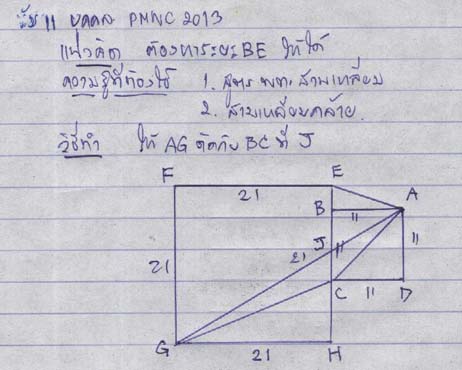 ข้อ 11 บุคคล PMWC 2013
แนวคิด ต้องหาระยะ BE ให้ได้
ความรู้ที่ต้องใช้ 1. สูตร พท. สามเหลี่ยม
2. สามเหลี่ยมคล้าย.
วิธีทำ ให้ AG ตัดกับ BC ที่ J
F E
21 B A
11
21 J 21 11 11
C 11 D
G 21 H